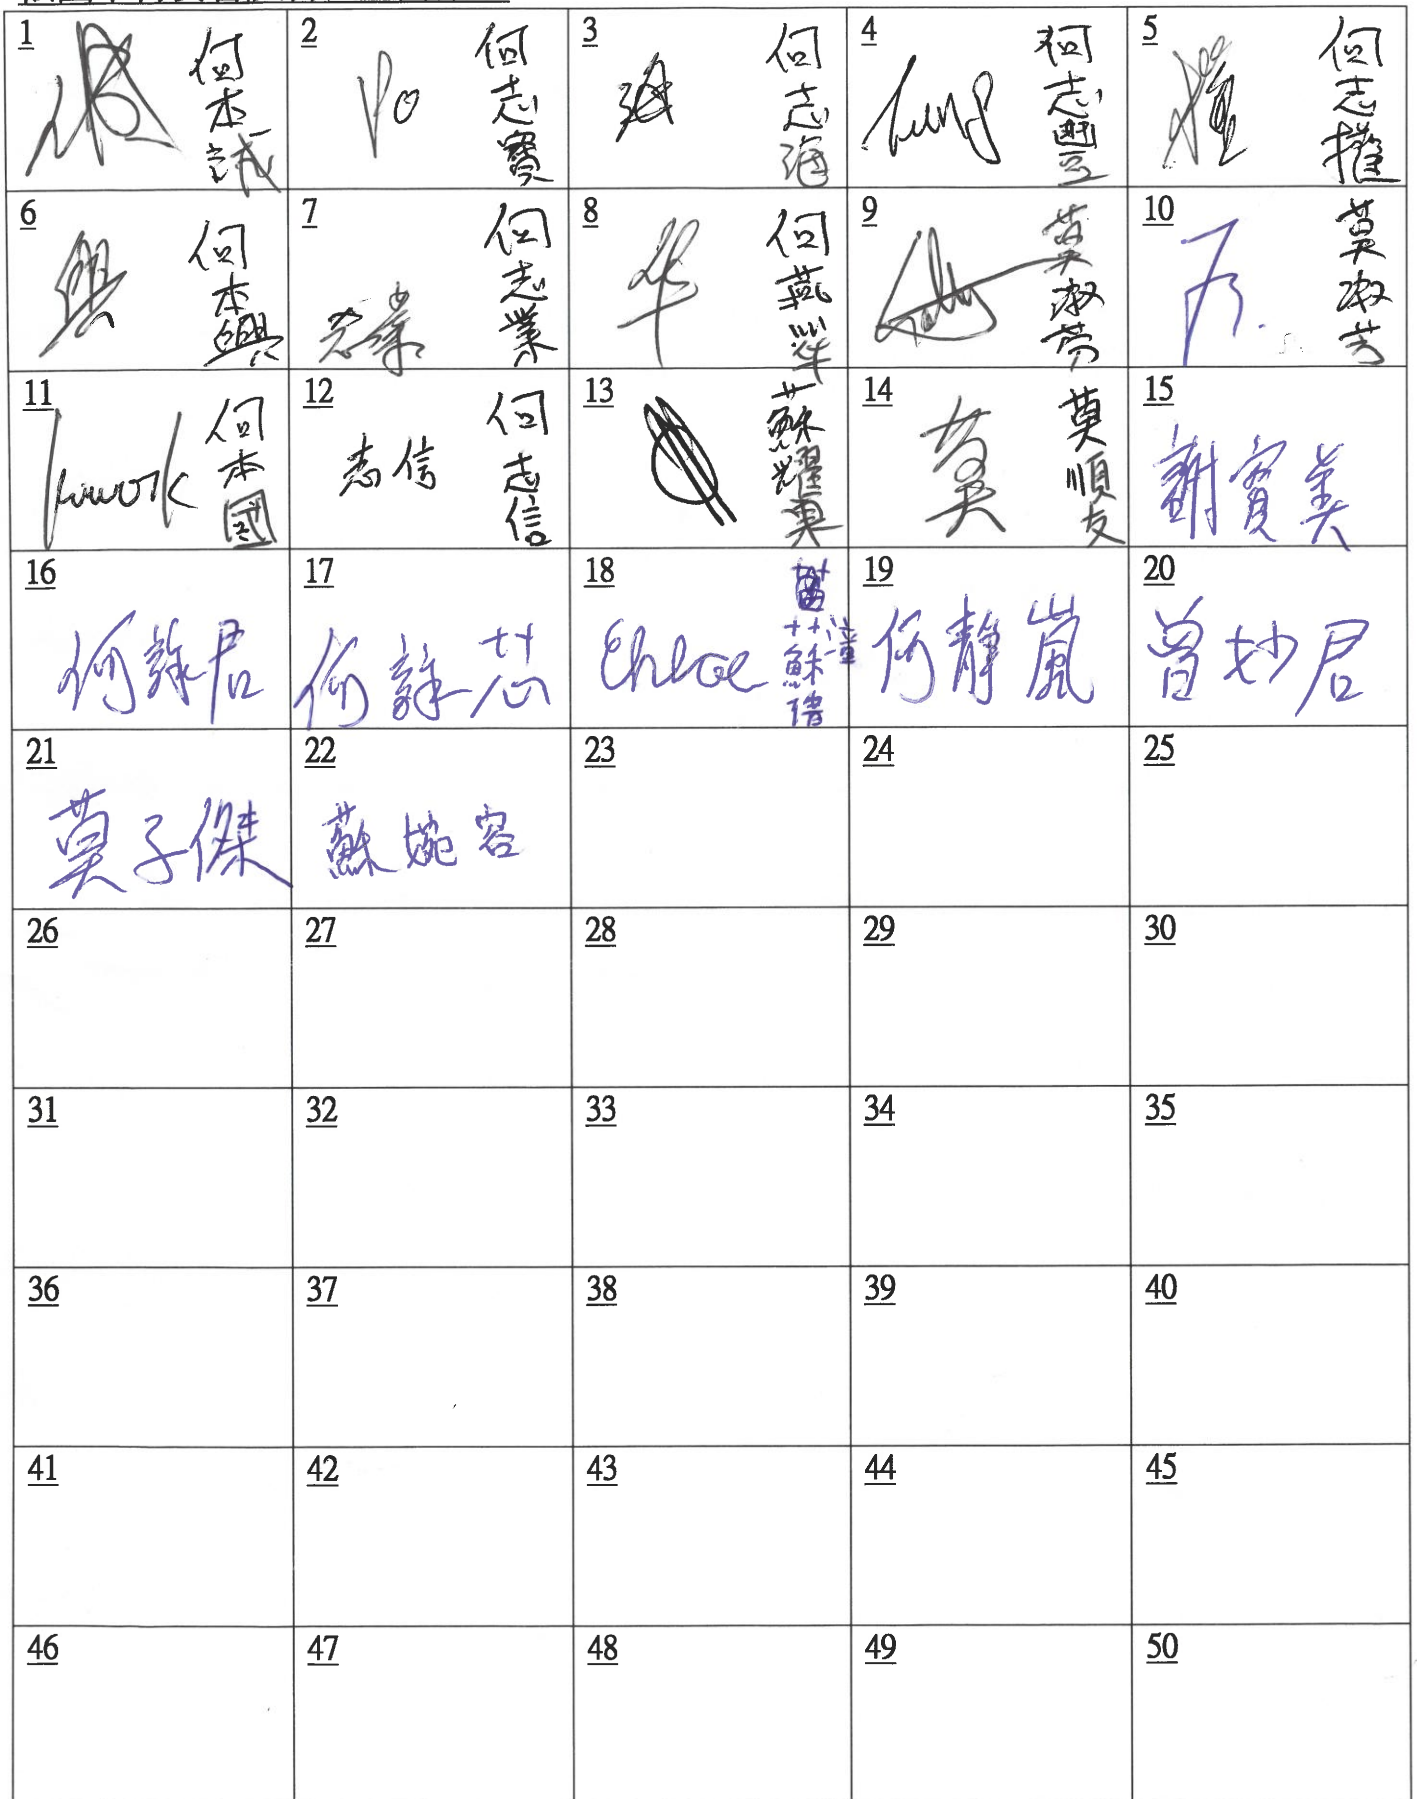 1 何本誠
2 Po 何志寶
3 海 何志海
4 Fung 何志豐
5 權 何志權
6 興 何本興
7 志業 何志業
8 华 何燕華
9 莫淑芬
10 莫淑芳
11 kwok 何本國
12 志信 何志信
13 蘇耀
14 莫 莫順友
15 謝寶美
16 何詠君
17 何詠芯
18 Chloe 蘇
19 何靜嵐
20 曾妙君
21 莫子傑
22 蘇婉容
23
24
25
26
27
28
29
30
31
32
33
34
35
36
37
38
39
40
41
42
43
44
45
46
47
48
49
50